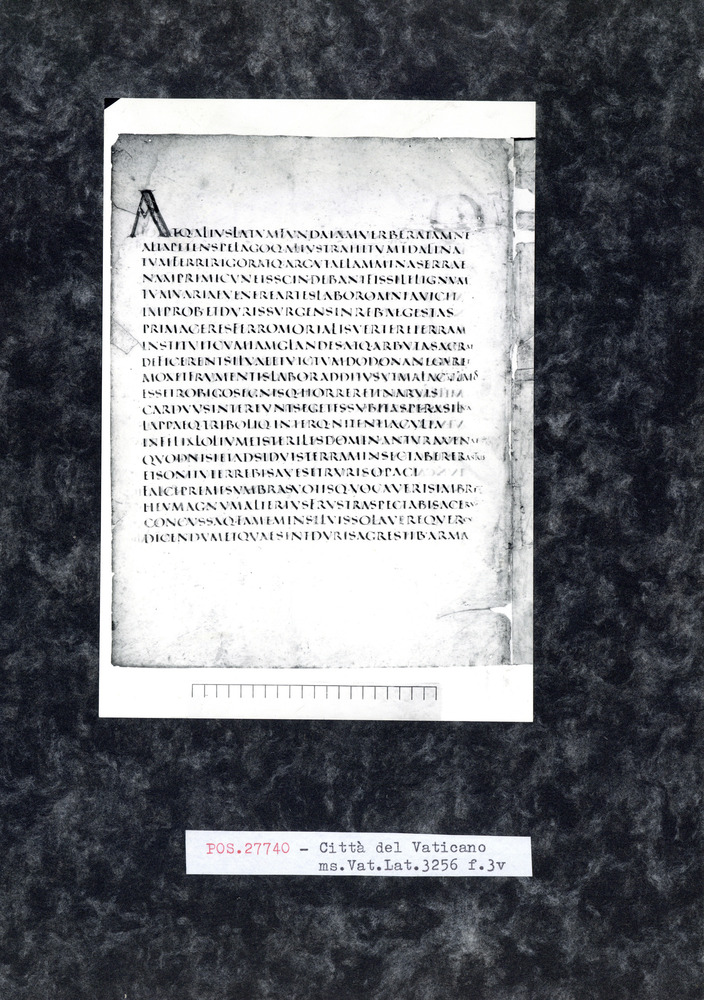 ATQ·ALIVSLATVMFVNDAIAMVERBERATAMNE
ALTAPETENSPELAGOQ·ALIVSTRAHITVMIDALINA
TVMFERRIRIGORATQ·ARGVTAELAMMINASERRAE
NAMPRIMICVNEISSCINDEBANTFISSILELIGNVM
TVMVARIAEVENEREARTESLABOROMNIAVICIT
IMPROB·ETDVRISSVRGENSINREB·AEGESTAS
PRIMACERESFERROMORTALISVERTERETERRAM
INSTITVITCVMIAMGLANDESATQ·ARBVTASACRAE
DEFICERENTSILVAEETVICTVMDODONANEGARET
MOXETFRVMENTISLABORADDITVSVTMALACVLMOS
ESSETROBIGOSEGNISQ·HORRERETINARVIS
CARDVVSINTEREVNTSEGETESSVBITASPERASILVA
LAPPAEQ·TRIBOLIQ·INTERQ·NITENTIACVLTA
INFELIXLOLIVMETSTERILESDOMINANTVRAVENAE
QVODNISIETADSIDVISTERRAMINSECTABERERASTRIS
ETSONITVTERREBISAVESETRVRISOPACI
FALCEPREMESVMBRASVOTISQ·VOCAVERISIMBRE
HEVMAGNVMALTERIVSFRVSTRASPECTABISACERV
CONCVSSAQ·FAMEMINSILVISSOLAVEREQVERCV
DICENDVMETQVAESINTDVRISAGRESTIB·ARMA
POS.27740 – Città del Vaticano
ms.Vat.Lat.3256 f.3v